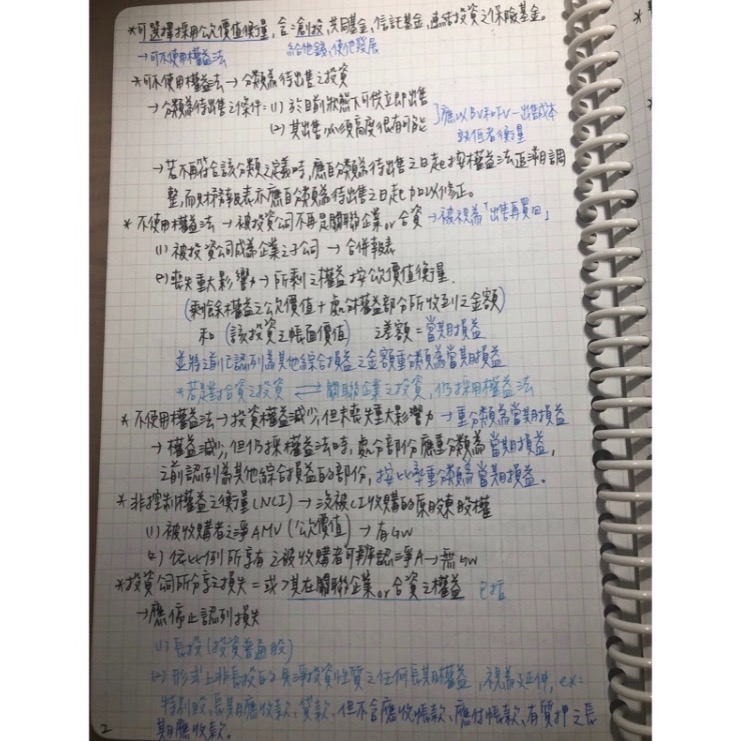 *可選擇採用公允價值衡量, 含:創投, 共同基金, 信託基金, 連結投資之保險基金。
→可不使用權益法 給他錢, 使他發展
*可不使用權益法→分類為待出售之投資
→分類為待出售之條件=(1) 於目前狀態下可供立即出售
(2) 其出售必須高度很有可能 ]應以BV和FV-出售成本
孰低者衡量
→若不再符合該分類之定義時, 應自分類為待出售之日起按權益法追溯調
整, 而財務報表亦應自分類為待出售之日起加以修正。
* 不使用權益法→被投資公司不再是關聯企業or合資→被視為「出售再買回」
(1) 被投資公司成為企業之子公司→合併報表
(2)喪失重大影響力→所剩之權益按公允價值衡量.
(剩餘權益之公允價值+處分權益部分所收到之金額)
和 (該投資之帳面價值) 之差額=當期損益
並將之前已認列為其他綜合損益之金額重分類為當期損益
*若是對合資之投資 ⇌ 關聯企業之投資, 仍採用權益法
* 不使用權益法→投資權益減少, 但未喪失重大影響力→重分類為當期損益
→權益減少, 但仍採權益法時, 處分部份應重分類為當期損益,
之前認列為其他綜合損益的部份, 按比率重分類為當期損益.
* 非控制權益之衡量(NCI)→沒被CI收購的原股東股權
(1) 被收購者之淨AMV (公允價值)→有GW
(2) 依比例所享有之被收購者可辨認淨A→無GW
*投資公司所分享之損失=或>其在關聯企業or合資之權益 包括
→應停止認列損失
(1) 長投(投資普通股)
(2) 形式上非長投的具淨投資性質之任何長期權益, 視為延伸, ex:
特別股, 長期應收款, 貸款, 但不含應收帳款, 應付帳款, 有質押之長
期應收款。
2